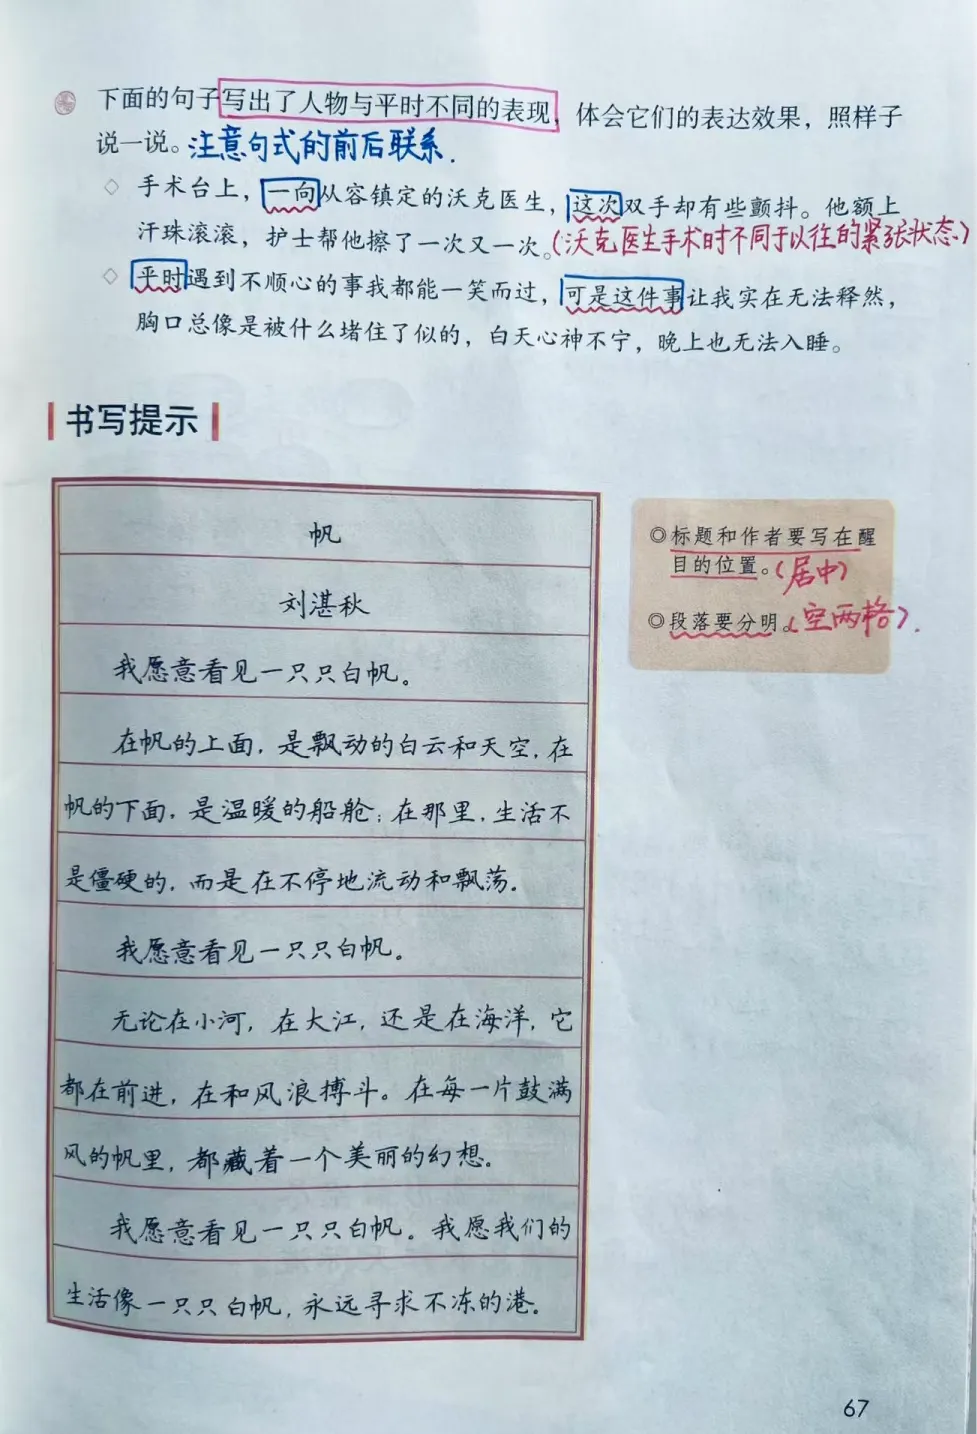 下面的句子写出了人物与平时不同的表现，体会它们的表达效果，照样子
说一说。注意句式的前后联系.
◇ 手术台上，一向从容镇定的沃克医生，这次双手却有些颤抖。他额上
汗珠滚滚，护士帮他擦了一次又一次。(沃克医生手术时不同于以往的紧张状态)
◇ 平时遇到不顺心的事我都能一笑而过，可是这件事让我实在无法释然，
胸口总像是被什么堵住了似的，白天心神不宁，晚上也无法入睡。
书写提示
帆
刘湛秋
我愿意看见一只只白帆。
在帆的上面，是飘动的白云和天空，在
帆的下面，是温暖的船舱；在那里，生活不
是僵硬的，而是在不停地流动和飘荡。
我愿意看见一只只白帆。
无论在小河，在大江，还是在海洋，它
都在前进，在和风浪搏斗。在每一片鼓满
风的帆里，都藏着一个美丽的幻想。
我愿意看见一只只白帆。我愿我们的
生活像一只只白帆，永远寻求不冻的港。
◎标题和作者要写在醒
目的位置。(居中)
◎段落要分明。(空两格).
67